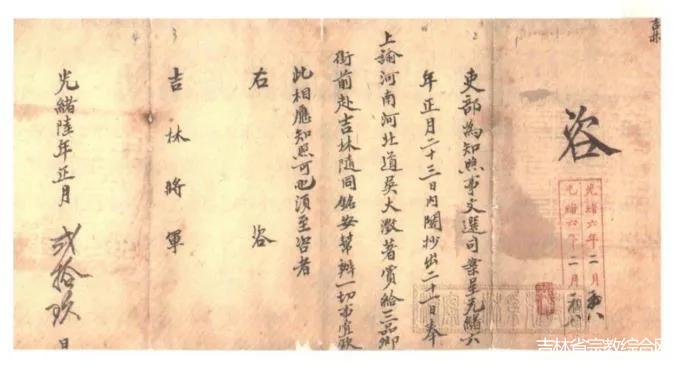 吉林
咨
光緒六年二月初八
光緒六年二月初八
吏部為知照事文選司案呈光緒六
年正月二十三日內閣抄出二十一日奉
上諭河南河北道吳大澂著賞給三品卿
銜前赴吉林隨同銘安幫辦一切事宜欽
此相應知照可也須至咨者
右咨
吉林將軍
光緒陸年正月貳拾玖日
吉林省宗教综合网